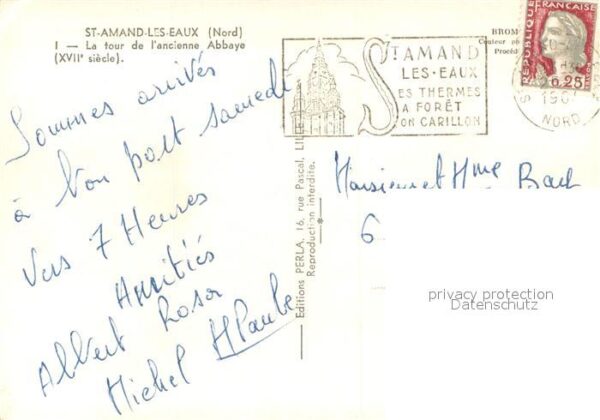 ST-AMAND-LES-EAUX (Nord)
I — La tour de l'ancienne Abbaye
(XVIIe siècle).
Sommes arrivés
à bon port samedi
Vers 7 Heures
Amitiés
Albert Rosa
Michel
Editions PERLA, 16, rue Pascal, LILLE
Reproduction interdite.
BROM
Couleur
Procéd
ST AMAND
LES-EAUX
SES THERMES
SA FORÊT
SON CARILLON
REPUBLIQUE FRANÇAISE
0,25
NORD
Monsieur et Mme
6
privacy protection
Datenschutz